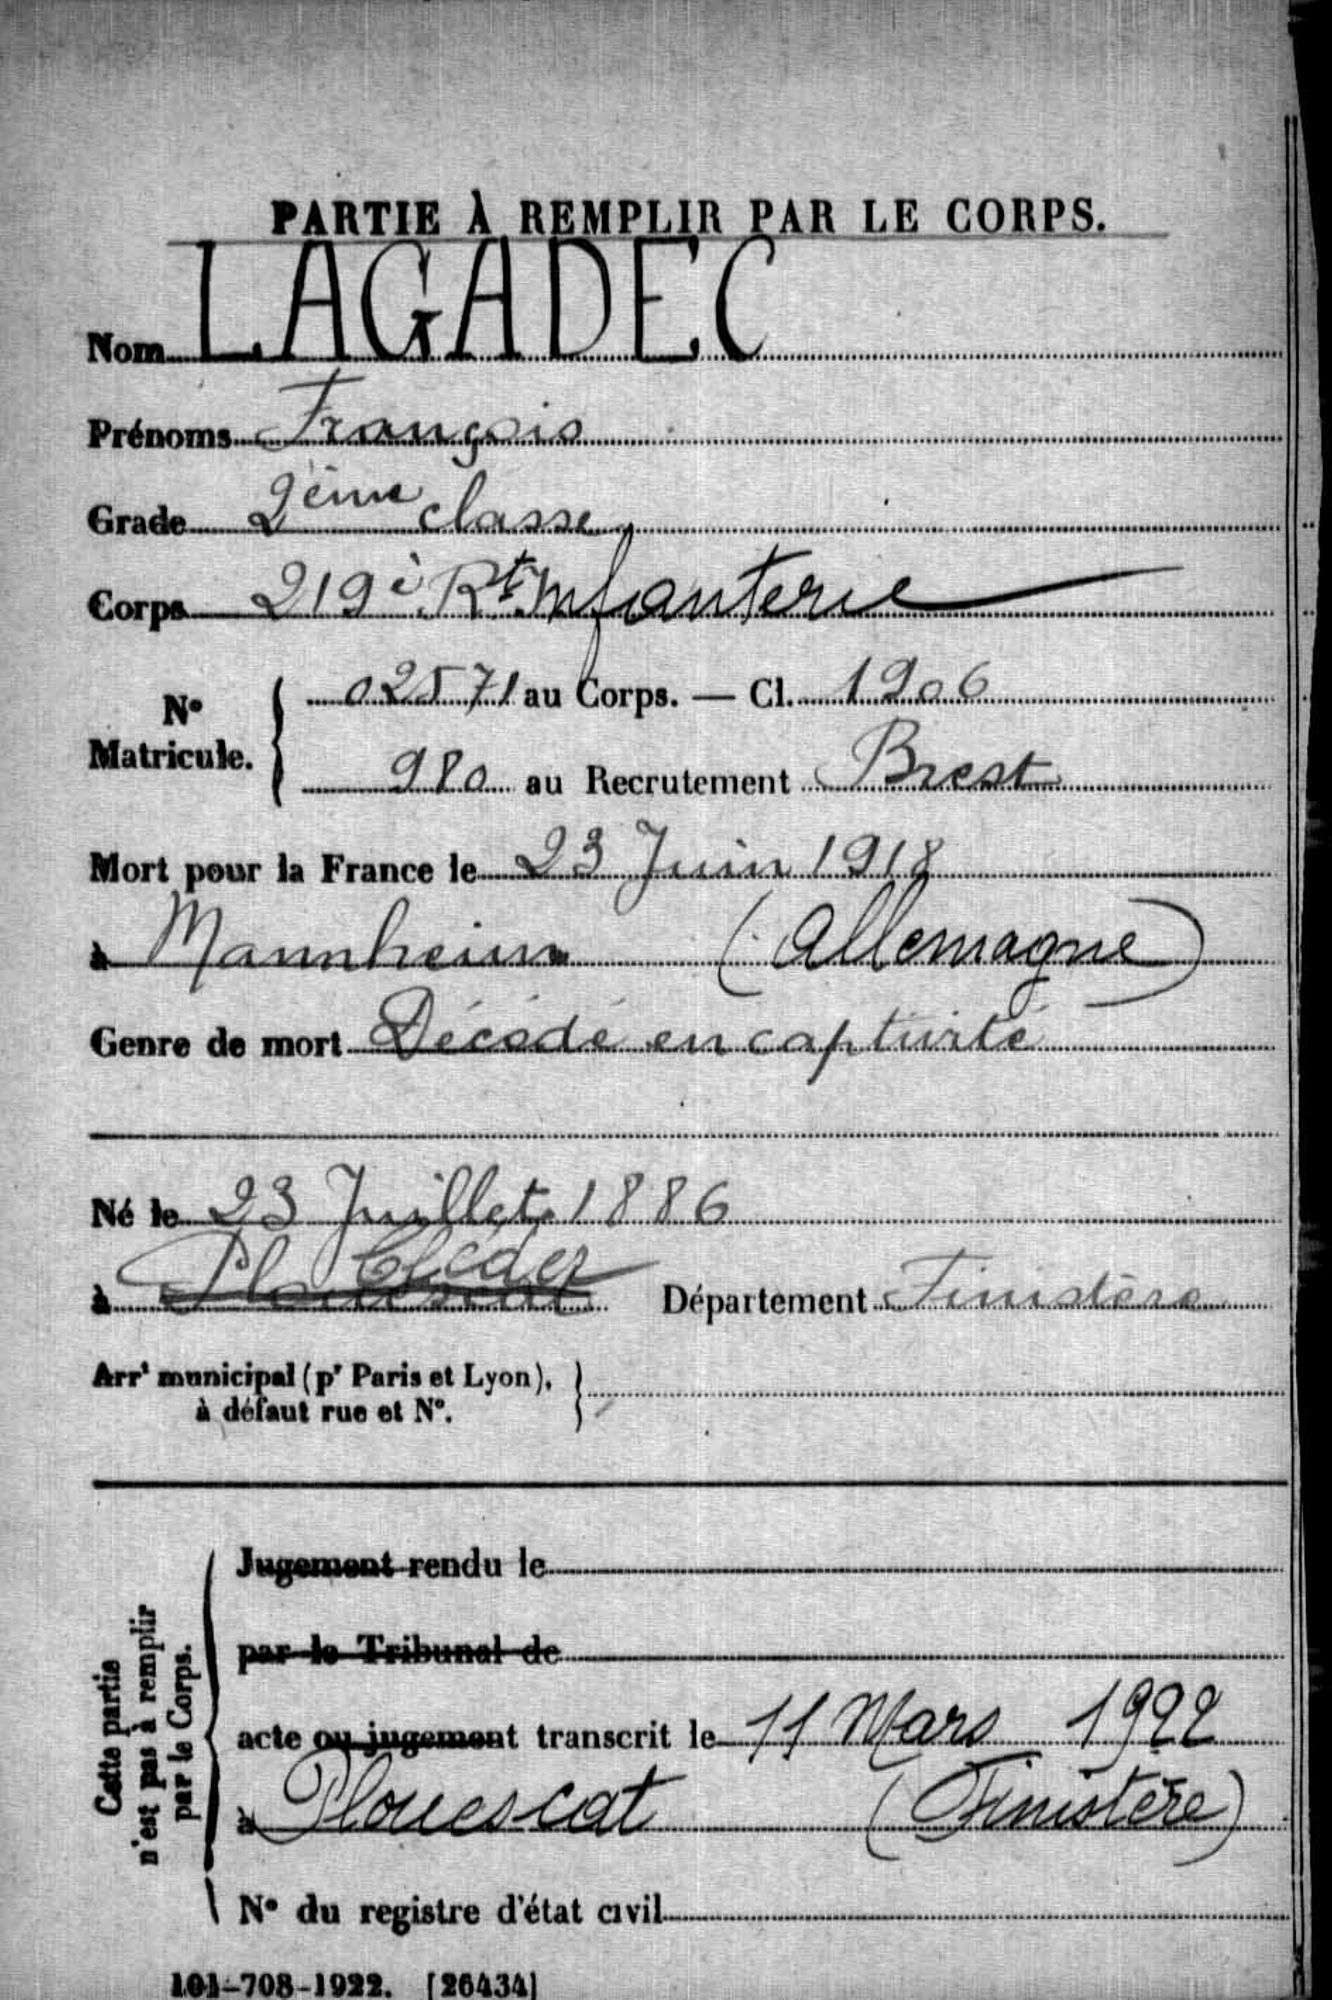 PARTIE À REMPLIR PAR LE CORPS.
Nom LAGADEC
Prénoms François
Grade 2ème classe
Corps 219è Rt Infanterie
N° Matricule. { 02571 au Corps. — Cl. 1906
980 au Recrutement Brest
Mort pour la France le 23 Juin 1918
à Mannheim (Allemagne)
Genre de mort Décédé en captivité
Né le 23 Juillet 1886
Cléder
à Plouescat Département Finistère
Arrt municipal (pr Paris et Lyon),
à défaut rue et N°.
Cette partie
n'est pas à remplir
par le Corps.
Jugement rendu le
par le Tribunal de
acte ou jugement transcrit le 11 Mars 1922
à Plouescat (Finistère)
N° du registre d'état civil
101-708-1922. [26434]